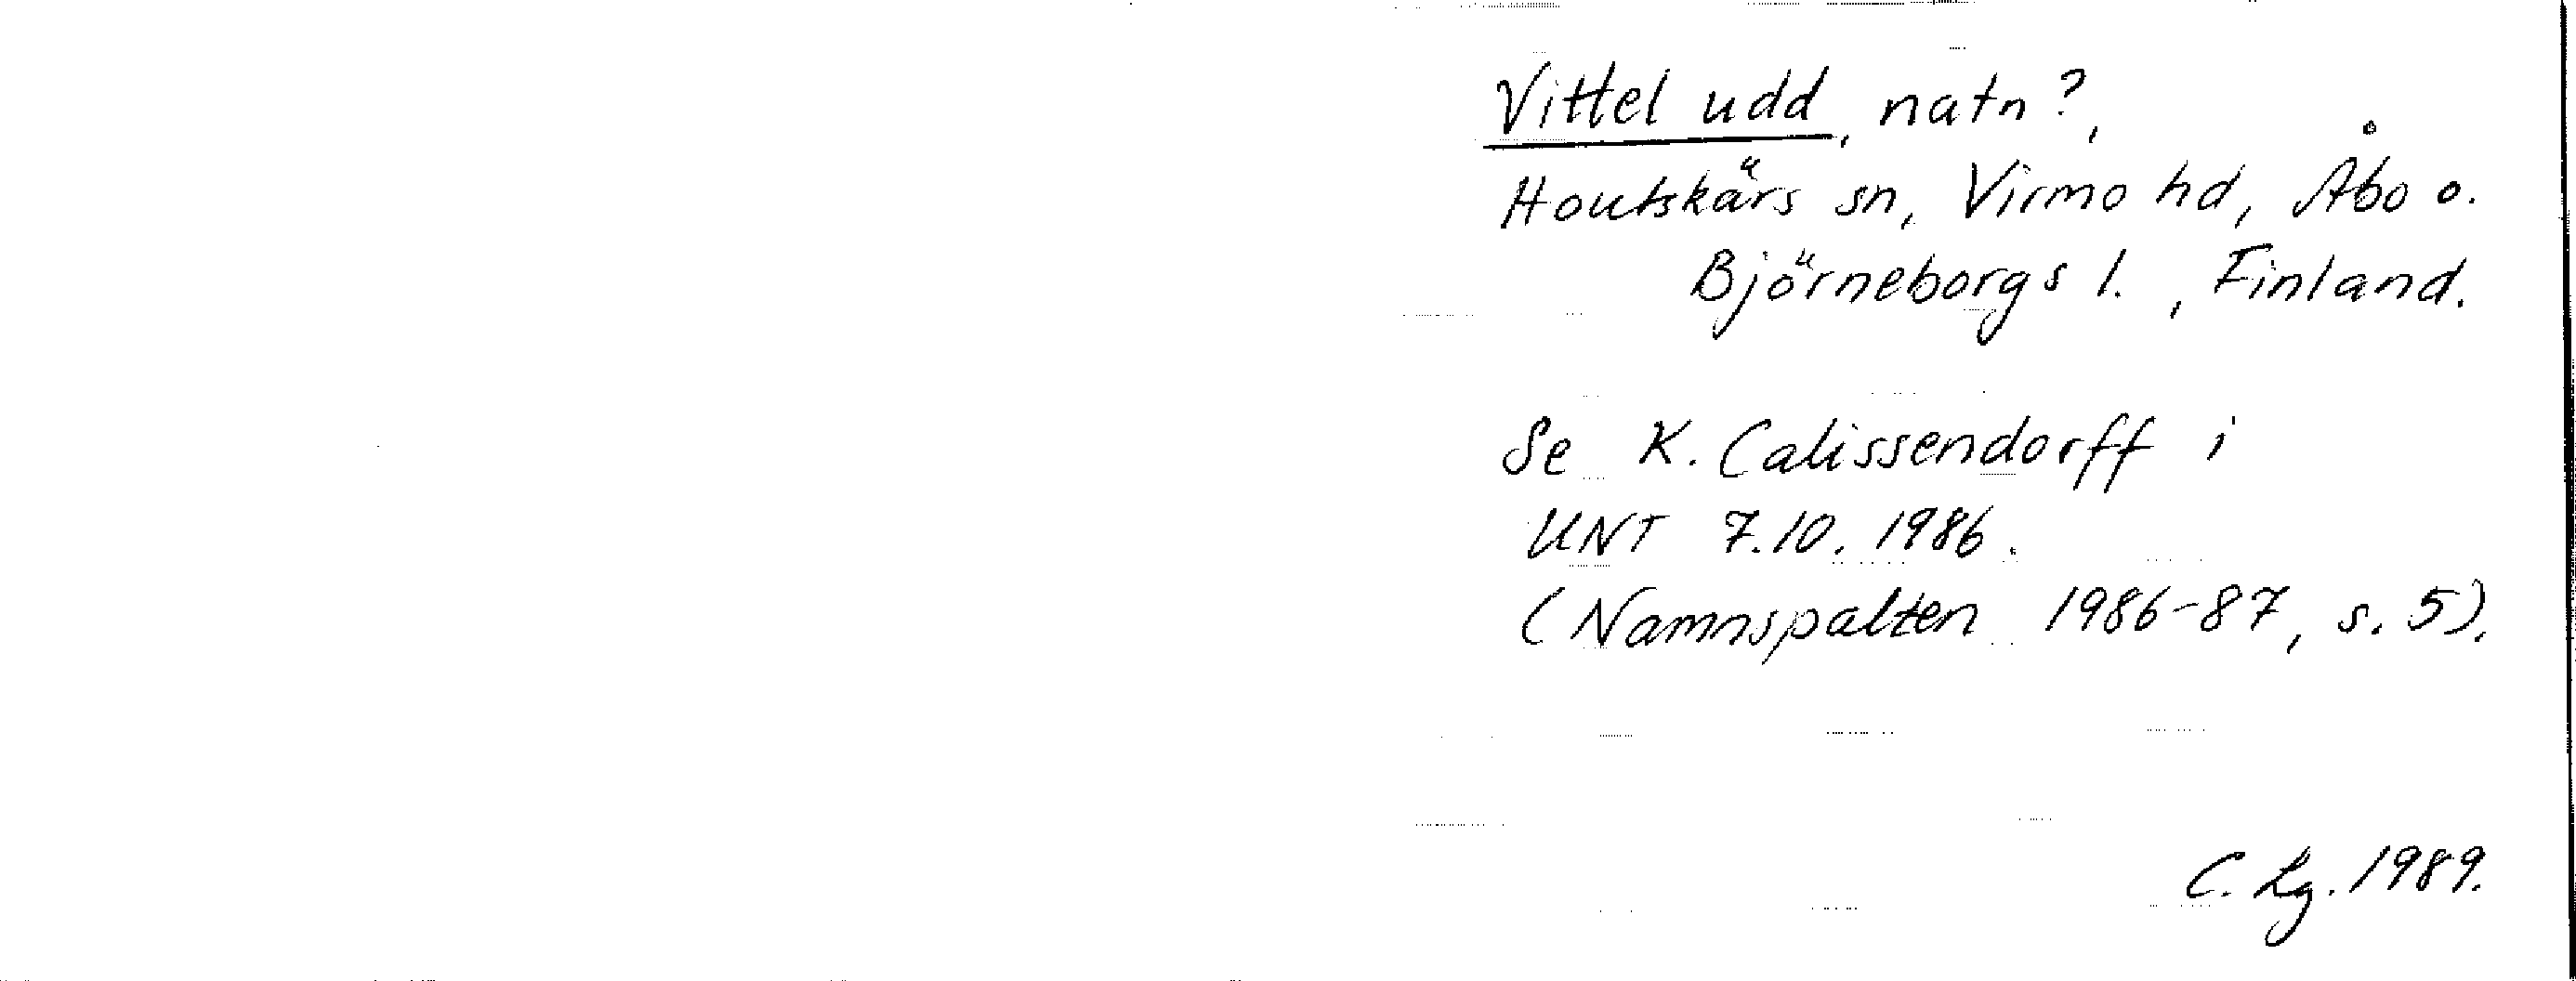 Vittel udd, natn?,
Houtskärs sn, Virmo hd, Åbo o.
Björneborgs l., Finland.
Se K. Calissendorff i
UNT 7.10.1986.
(Namnspalten 1986-87, s. 5).
C. Lg. 1989.